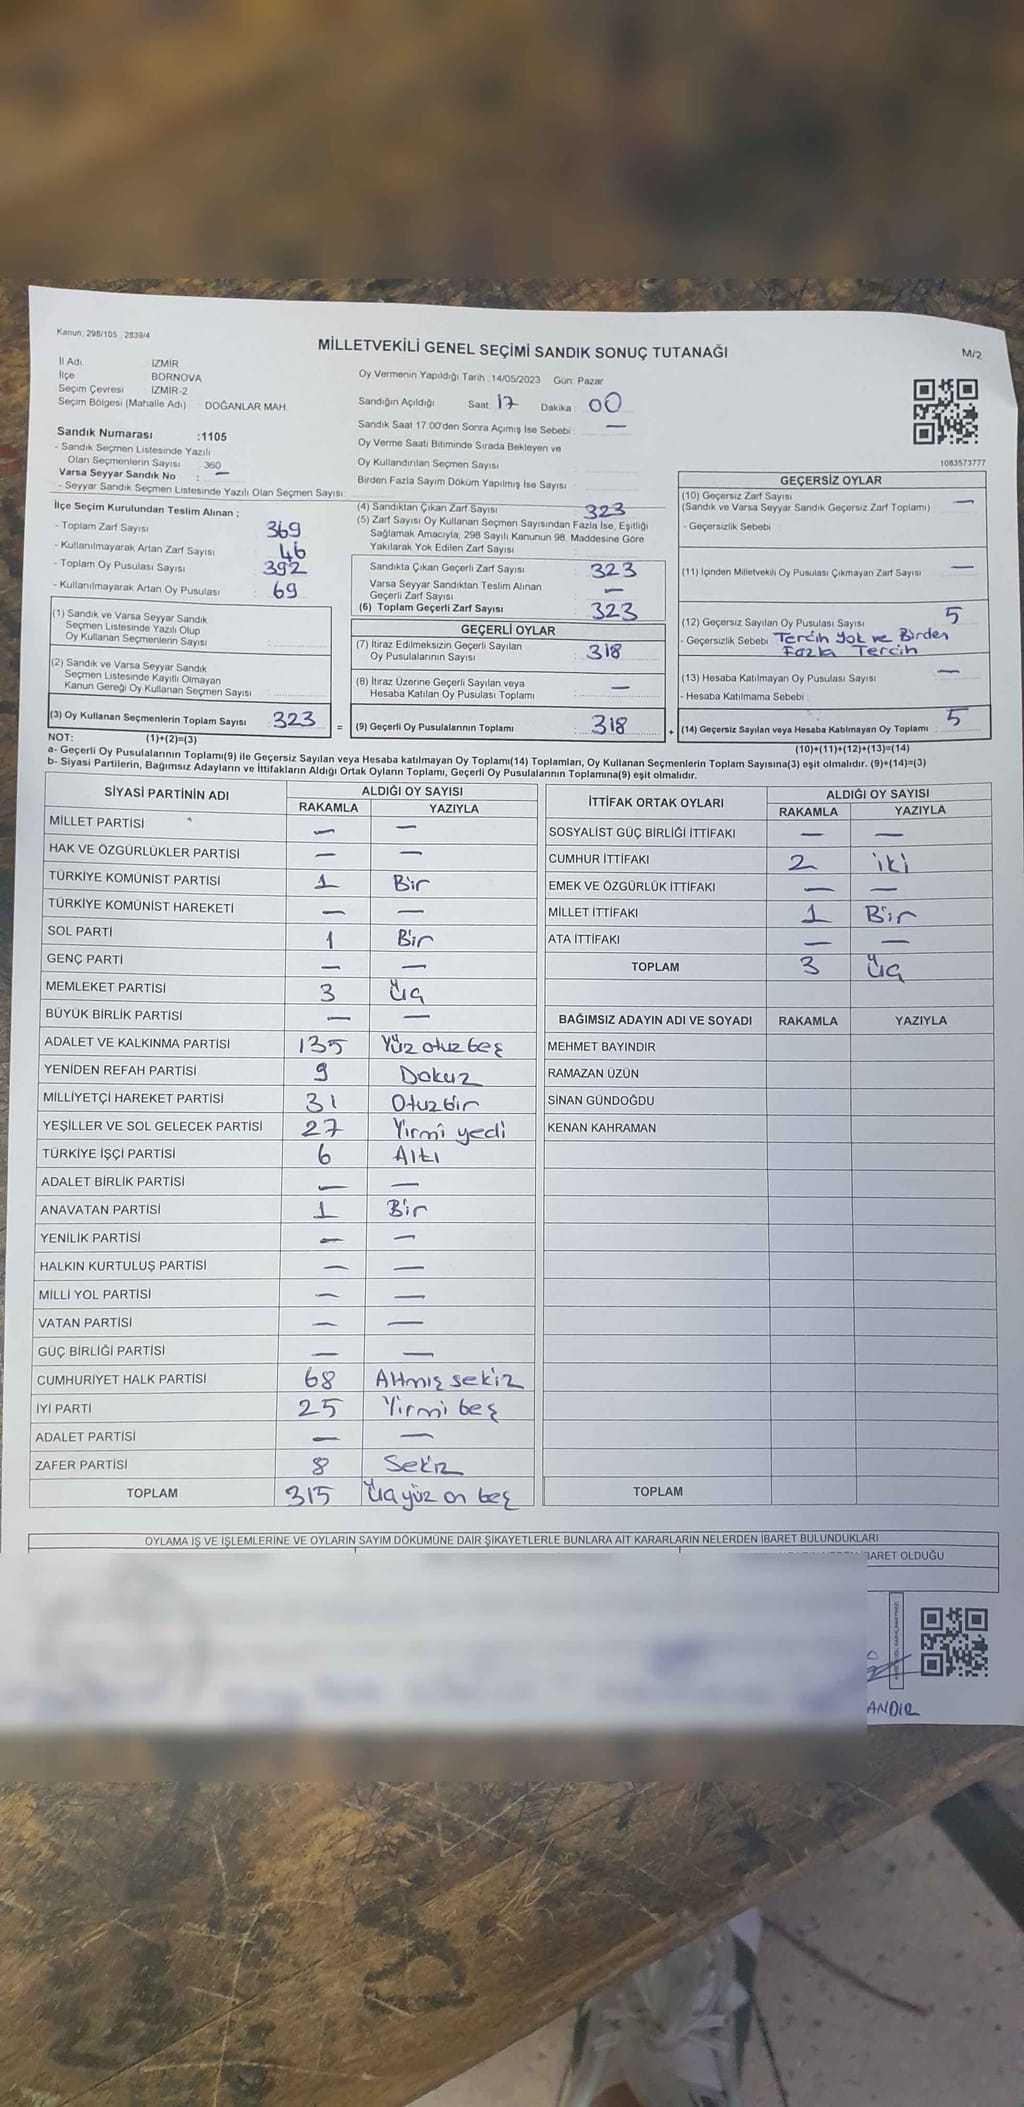 Kanun: 298/105 , 2839/4
MİLLETVEKİLİ GENEL SEÇİMİ SANDIK SONUÇ TUTANAĞI
M/2
İl Adı İZMİR
İlçe BORNOVA
Seçim Çevresi İZMİR-2
Seçim Bölgesi (Mahalle Adı) DOĞANLAR MAH.
Oy Vermenin Yapıldığı Tarih : 14/05/2023 Gün: Pazar
Sandığın Açıldığı Saat 17 Dakika : 00
Sandık Saat 17:00'den Sonra Açımış İse Sebebi : —
Oy Verme Saati Bitiminde Sırada Bekleyen ve
Oy Kullandırılan Seçmen Sayısı
Birden Fazla Sayım Döküm Yapılmış İse Sayısı
1083573777
Sandık Numarası :1105
- Sandık Seçmen Listesinde Yazılı
Olan Seçmenlerin Sayısı 360
Varsa Seyyar Sandık No : —
- Seyyar Sandık Seçmen Listesinde Yazılı Olan Seçmen Sayısı:
İlçe Seçim Kurulundan Teslim Alınan ;
- Toplam Zarf Sayısı 369
- Kullanılmayarak Artan Zarf Sayısı 46
- Toplam Oy Pusulası Sayısı 392
- Kullanılmayarak Artan Oy Pusulası 69
(1) Sandık ve Varsa Seyyar Sandık
Seçmen Listesinde Yazılı Olup
Oy Kullanan Seçmenlerin Sayısı
(2) Sandık ve Varsa Seyyar Sandık
Seçmen Listesinde Kayıtlı Olmayan
Kanun Gereği Oy Kullanan Seçmen Sayısı
(3) Oy Kullanan Seçmenlerin Toplam Sayısı : 323 =
(4) Sandıktan Çıkan Zarf Sayısı 323
(5) Zarf Sayısı Oy Kullanan Seçmen Sayısından Fazla İse, Eşitliği
Sağlamak Amacıyla, 298 Sayılı Kanunun 98. Maddesine Göre
Yakılarak Yok Edilen Zarf Sayısı
Sandıkta Çıkan Geçerli Zarf Sayısı : 323
Varsa Seyyar Sandıktan Teslim Alınan
Geçerli Zarf Sayısı —
(6) Toplam Geçerli Zarf Sayısı 323
GEÇERLİ OYLAR
(7) İtiraz Edilmeksizin Geçerli Sayılan
Oy Pusulalarının Sayısı : 318
(8) İtiraz Üzerine Geçerli Sayılan veya
Hesaba Katılan Oy Pusulası Toplamı : —
(9) Geçerli Oy Pusulalarının Toplamı : 318 +
GEÇERSİZ OYLAR
(10) Geçersiz Zarf Sayısı
(Sandık ve Varsa Seyyar Sandık Geçersiz Zarf Toplamı) —
- Geçersizlik Sebebi :
(11) İçinden Milletvekili Oy Pusulası Çıkmayan Zarf Sayısı —
(12) Geçersiz Sayılan Oy Pusulası Sayısı 5
- Geçersizlik Sebebi Tercih Yok ve Birden
Fazla Tercih
(13) Hesaba Katılmayan Oy Pusulası Sayısı —
- Hesaba Katılmama Sebebi :
(14) Geçersiz Sayılan veya Hesaba Katılmayan Oy Toplamı 5
NOT: (1)+(2)=(3)
(10)+(11)+(12)+(13)=(14)
a- Geçerli Oy Pusulalarının Toplamı(9) ile Geçersiz Sayılan veya Hesaba katılmayan Oy Toplamı(14) Toplamları, Oy Kullanan Seçmenlerin Toplam Sayısına(3) eşit olmalıdır. (9)+(14)=(3)
b- Siyasi Partilerin, Bağımsız Adayların ve İttifakların Aldığı Ortak Oyların Toplamı, Geçerli Oy Pusulalarının Toplamına(9) eşit olmalıdır.
SİYASİ PARTİNİN ADI ALDIĞI OY SAYISI
RAKAMLA YAZIYLA
MİLLET PARTİSİ — —
HAK VE ÖZGÜRLÜKLER PARTİSİ — —
TÜRKİYE KOMÜNİST PARTİSİ 1 Bir
TÜRKİYE KOMÜNİST HAREKETİ — —
SOL PARTİ 1 Bir
GENÇ PARTİ — —
MEMLEKET PARTİSİ 3 Üç
BÜYÜK BİRLİK PARTİSİ — —
ADALET VE KALKINMA PARTİSİ 135 Yüz otuz beş
YENİDEN REFAH PARTİSİ 9 Dokuz
MİLLİYETÇİ HAREKET PARTİSİ 31 Otuz bir
YEŞİLLER VE SOL GELECEK PARTİSİ 27 Yirmi yedi
TÜRKİYE İŞÇİ PARTİSİ 6 Altı
ADALET BİRLİK PARTİSİ — —
ANAVATAN PARTİSİ 1 Bir
YENİLİK PARTİSİ — —
HALKIN KURTULUŞ PARTİSİ — —
MİLLİ YOL PARTİSİ — —
VATAN PARTİSİ — —
GÜÇ BİRLİĞİ PARTİSİ — —
CUMHURİYET HALK PARTİSİ 68 Altmış sekiz
İYİ PARTİ 25 Yirmi beş
ADALET PARTİSİ — —
ZAFER PARTİSİ 8 Sekiz
TOPLAM 315 Üçyüz on beş
İTTİFAK ORTAK OYLARI ALDIĞI OY SAYISI
RAKAMLA YAZIYLA
SOSYALİST GÜÇ BİRLİĞİ İTTİFAKI — —
CUMHUR İTTİFAKI 2 iki
EMEK VE ÖZGÜRLÜK İTTİFAKI — —
MİLLET İTTİFAKI 1 Bir
ATA İTTİFAKI — —
TOPLAM 3 Üç
BAĞIMSIZ ADAYIN ADI VE SOYADI RAKAMLA YAZIYLA
MEHMET BAYINDIR
RAMAZAN ÜZÜN
SİNAN GÜNDOĞDU
KENAN KAHRAMAN
TOPLAM
OYLAMA İŞ VE İŞLEMLERİNE VE OYLARIN SAYIM DÖKÜMÜNE DAİR ŞİKAYETLERLE BUNLARA AİT KARARLARIN NELERDEN İBARET BULUNDUKLARI
BARET OLDUĞU
ANDIR